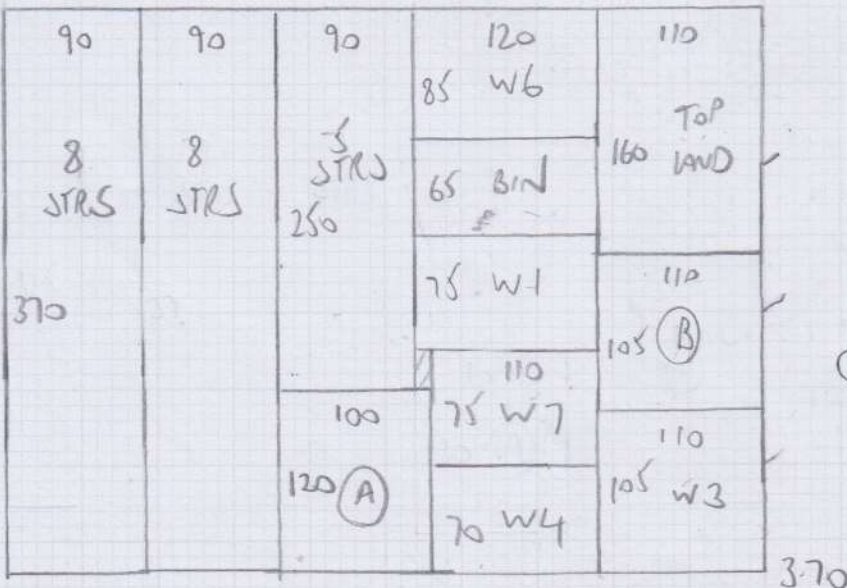 90
8
STRS
370
90
8
STRS
90
5
STRS
250
100
120 A
120
85 W6
65 BIN
75 W1
110
75 W7
70 W4
110
TOP
160 LAND
110
105 B
110
105 W3
3.70